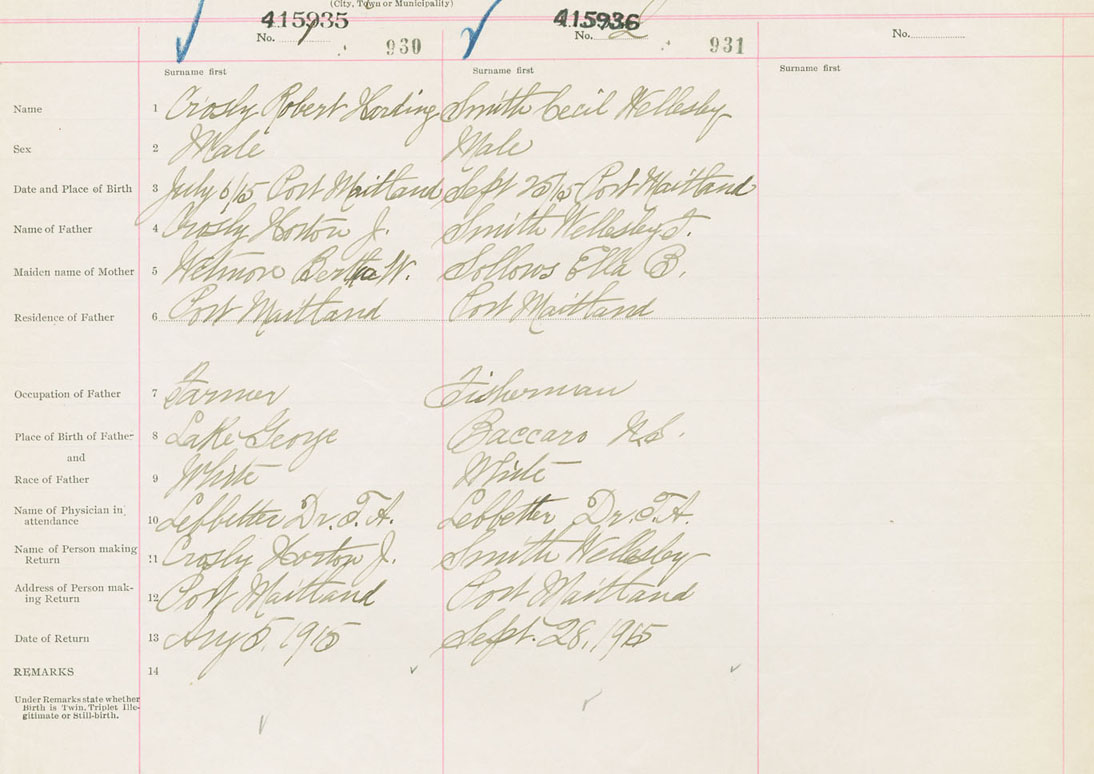 (City, Town or Municipality)
415935 415936
No. 1 930 No. 2 931 No.
Surname first Surname first Surname first
Name 1 Crosby Robert Harding Smith Cecil Wellesby
Sex 2 Male Male
Date and Place of Birth 3 July 6/15 Port Maitland Sept 25/15 Port Maitland
Name of Father 4 Crosby Horton J. Smith Wellesby
Maiden name of Mother 5 Bertha W. Sollows Ella B.
Residence of Father 6 Port Maitland Port Maitland
Occupation of Father 7 Farmer Fisherman
Place of Birth of Father 8 Lake George Baccaro N.S.
and
Race of Father 9 White White
Name of Physician in
attendance 10 Dr. T. A. Dr. T. A.
Name of Person making
Return 11 Crosby Horton J. Smith Wellesby
Address of Person mak-
ing Return 12 Port Maitland Port Maitland
Date of Return 13 Aug 5, 1915 Sept. 28, 1915
REMARKS 14
Under Remarks state whether
Birth is Twin, Triplet Ille-
gitimate or Still-birth.